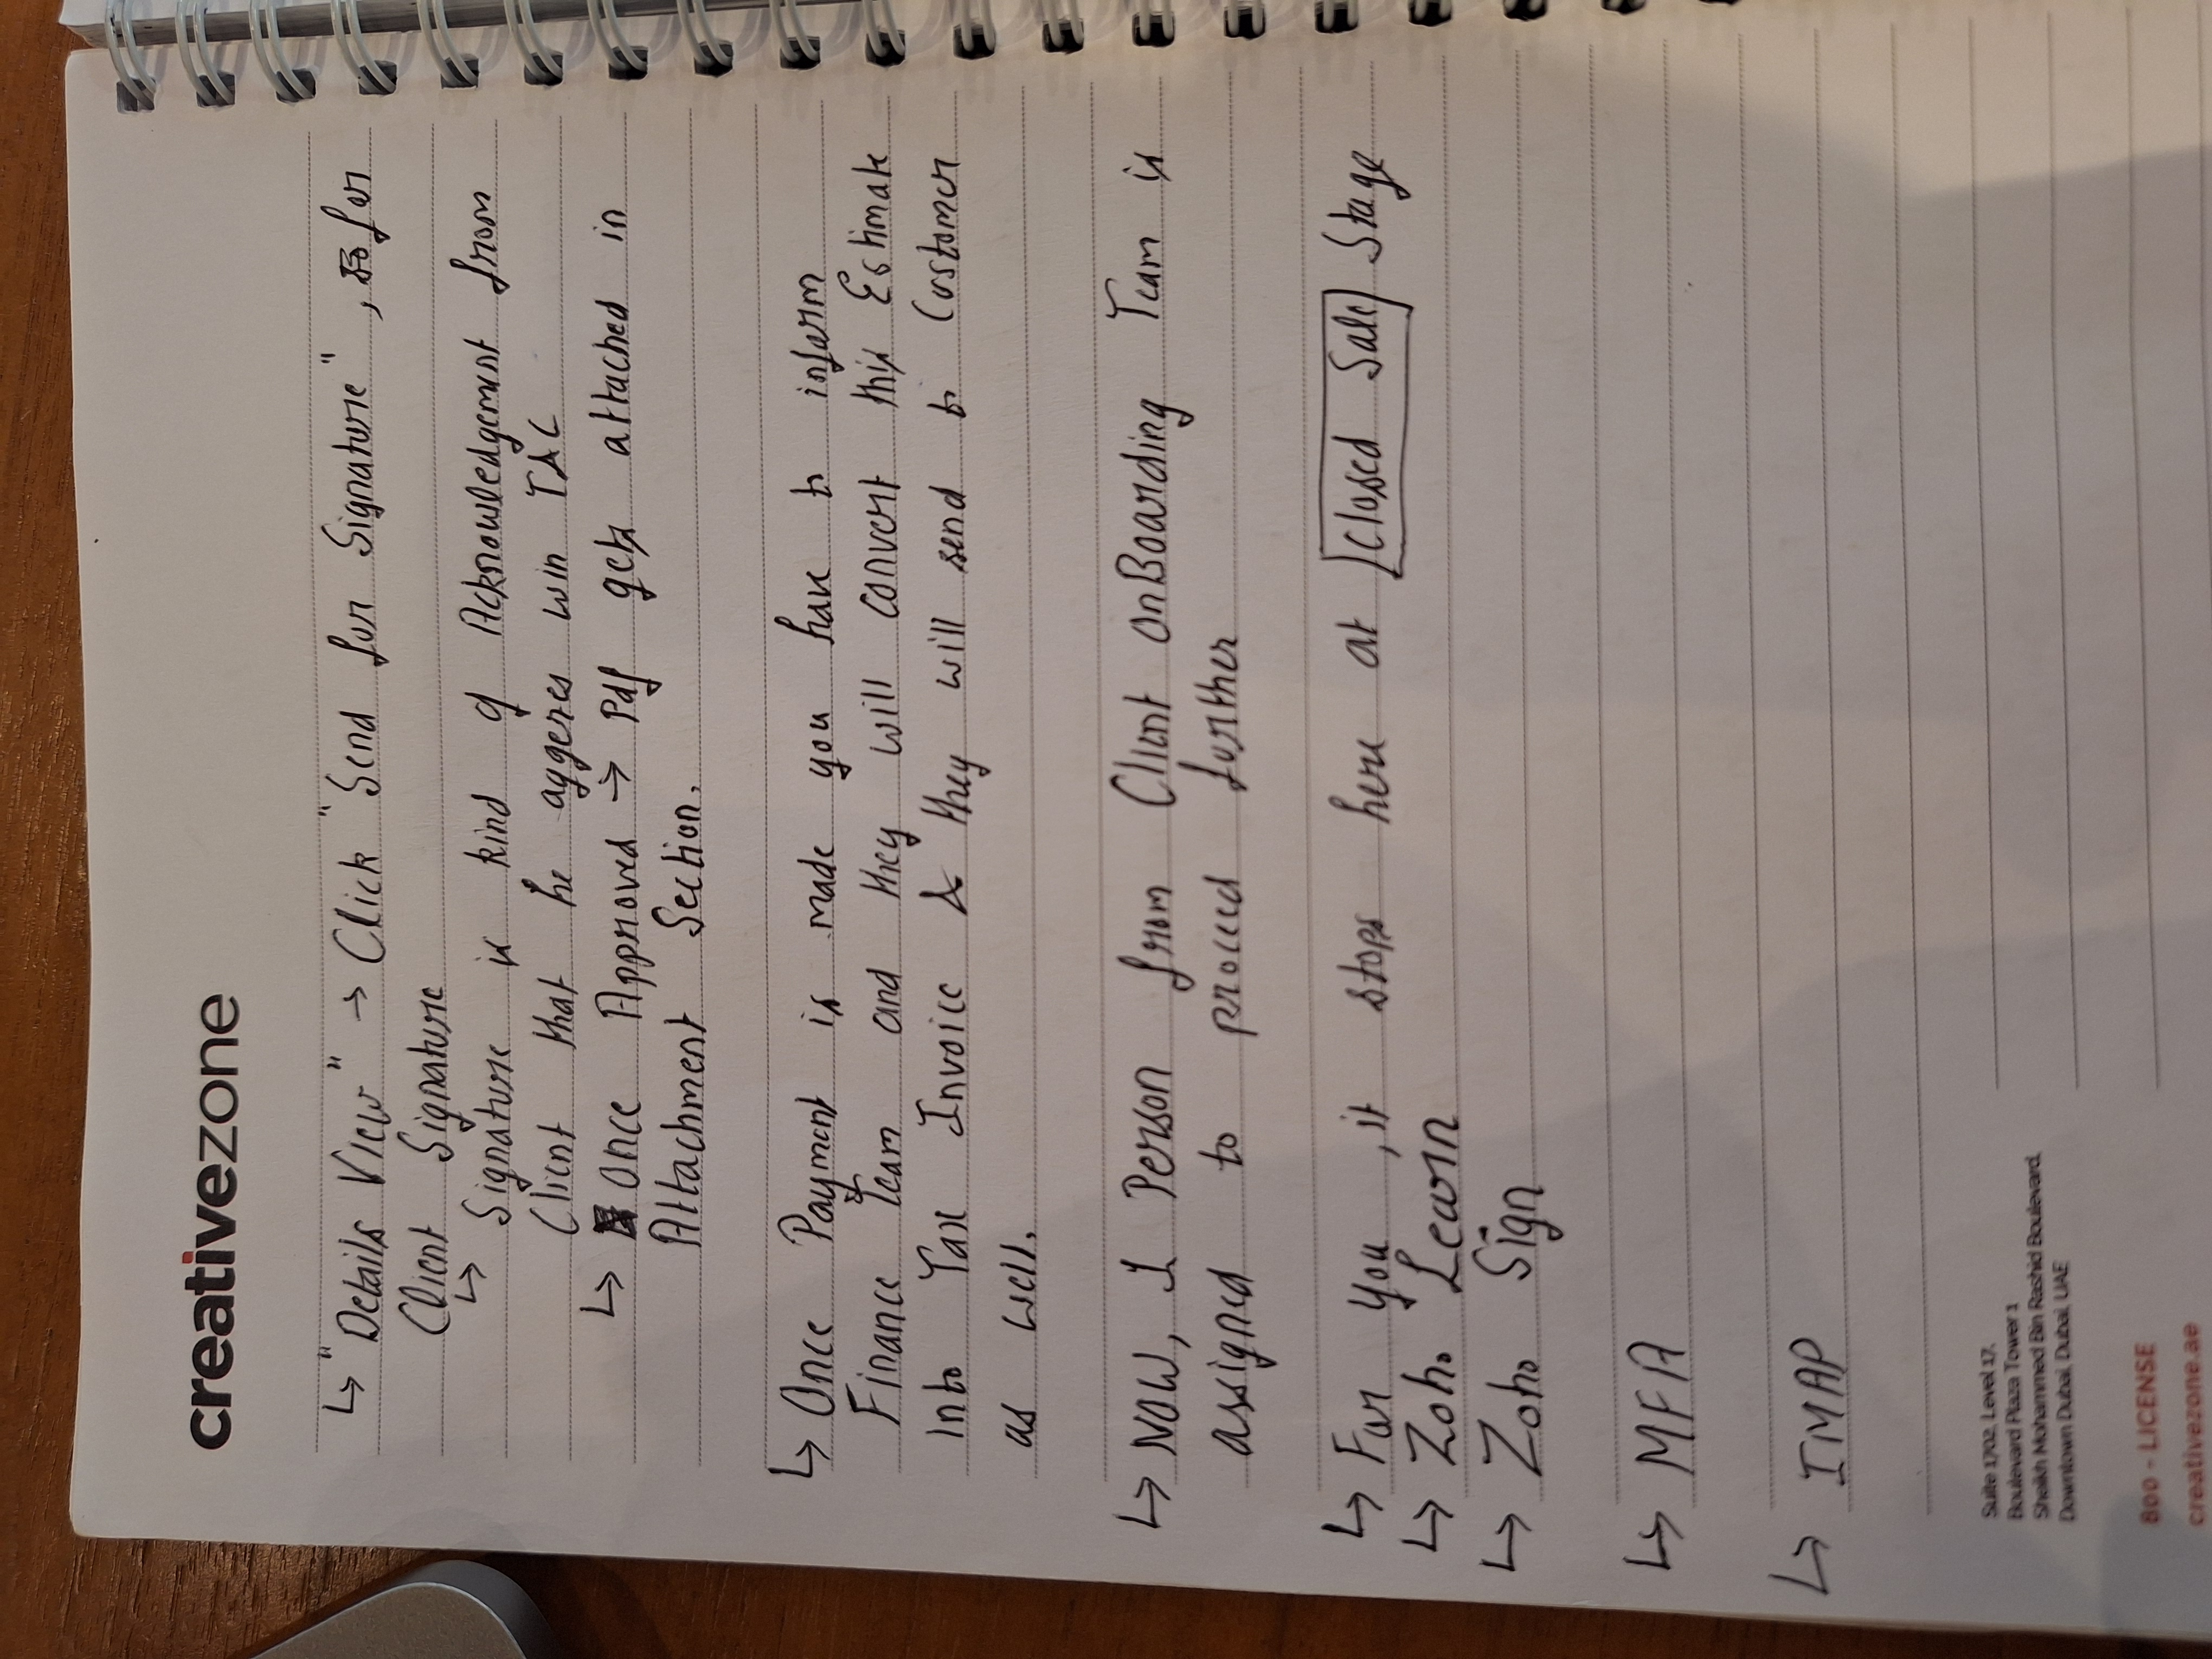 creativezone
↳ "Details View" → Click "Send for Signature", for
Client Signature
↳ Signature is kind of Acknowledgement from
Client that he aggeres win T&C
↳ Once Approved → Pdf gets attached in
Attachment Section.
↳ Once Payment is made you have to inform
Finance Team and they will convert this Estimate
into Tax Invoice & they will send to Customer
as well.
↳ NOW, 1 Person from Client OnBoarding Team is
assigned to proceed further
↳ For you, it stops here at [Closed Sale] Stage
↳ Zoho Learn
↳ Zoho Sign
↳ MFA
↳ IMAP
Suite 1702, Level 17,
Boulevard Plaza Tower 1
Sheikh Mohammed Bin Rashid Boulevard,
Downtown Dubai, Dubai, UAE
800 - LICENSE
creativezone.ae